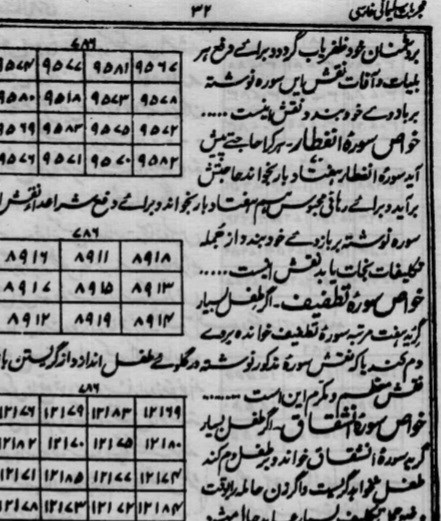 ۳۲
بر دشمنان خود ظفر یاب گردد و برائے دفع ہر
بلیات و آفات نقش بایں سورہ نوشتہ
بر بازوے خود بندد نقش اینست .....
۷۸۶
۹۵۷۴ ۹۵۷۷ ۹۵۸۱ ۹۵۶۷
۹۵۸۰ ۹۵۶۸ ۹۵۷۳ ۹۵۷۸
۹۵۶۹ ۹۵۸۳ ۹۵۷۵ ۹۵۷۲
۹۵۷۶ ۹۵۷۱ ۹۵۷۰ ۹۵۸۲
خواص سورۂ انفطار۔ ہر کرا حاجتے پیش
آید سورۂ انفطار ہفتاد بار بخواند حاجتش
برآید و برائے رہائی محبوس ہم ہفتاد بار بخواند و برائے دفع شر اعدا نقش
سورہ نوشتہ بر بازوے خود بندد از جملہ
تکلیفات نجات یابد نقش اینست .....
۷۸۶
۸۹۱۶ ۸۹۱۱ ۸۹۱۸
۸۹۱۷ ۸۹۱۵ ۸۹۱۳
۸۹۱۲ ۸۹۱۹ ۸۹۱۴
خواص سورۂ تطفیف۔ اگر طفل بسیار
گرید ہفت مرتبہ سورۂ تطفیف خواندہ بروے
دم کند یا کہ نقش سورۂ مذکور نوشتہ در گلوے طفل اندازد از گریستن باز
نقش معظم و مکرم این است .....
۷۸۶
۱۲۱۷۶ ۱۲۱۷۹ ۱۲۱۸۳ ۱۲۱۶۹
۱۲۱۸۲ ۱۲۱۷۰ ۱۲۱۷۵ ۱۲۱۸۰
۱۲۱۷۱ ۱۲۱۸۵ ۱۲۱۷۷ ۱۲۱۷۴
۱۲۱۷۸ ۱۲۱۷۳ ۱۲۱۷۲ ۱۲۱۸۴
خواص سورۂ انشقاق۔ اگر طفل بسیار
گرید سورۂ انشقاق خواند و بر طفل دم کند
طفل نخواہد گریست و اگر زن حاملہ را وقت